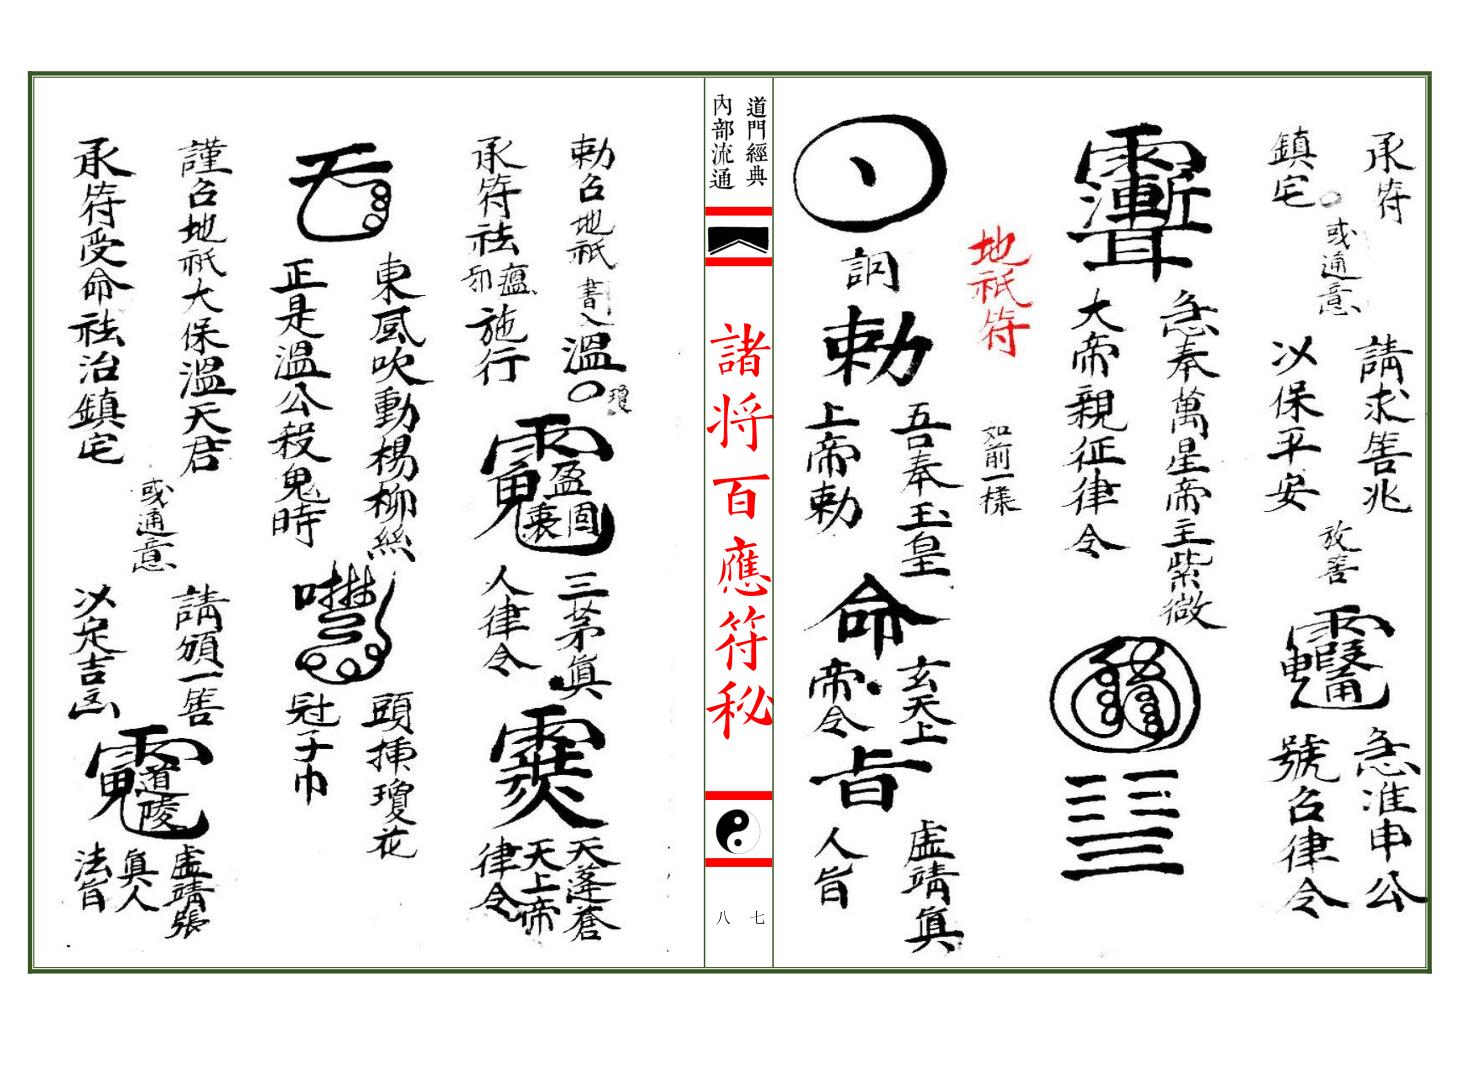 承符
鎮宅
或通意
請求筶兆
以保平安
放筶
急准申公
號召律令
急奉萬星帝主紫微
大帝親征律令
地祇符
如前一樣
詞
勅
吾奉玉皇
上帝勅
命
玄天上
帝令
旨
虛靖真
人旨
道門經典
內部流通
諸将百應符秘
七
八
勅召地祇
書入溫
瓊
承符祛瘟
邪
施行
三茅真
人律令
天蓬蒼
天上帝
律令
東風吹動楊柳絲
正是溫公殺鬼時
頭插瓊花
冠子巾
謹召地祇大保溫天君
承符受命祛治鎮宅
或通意
請頒一筶
以定吉凶
道陵
虛靖張
真人
法旨